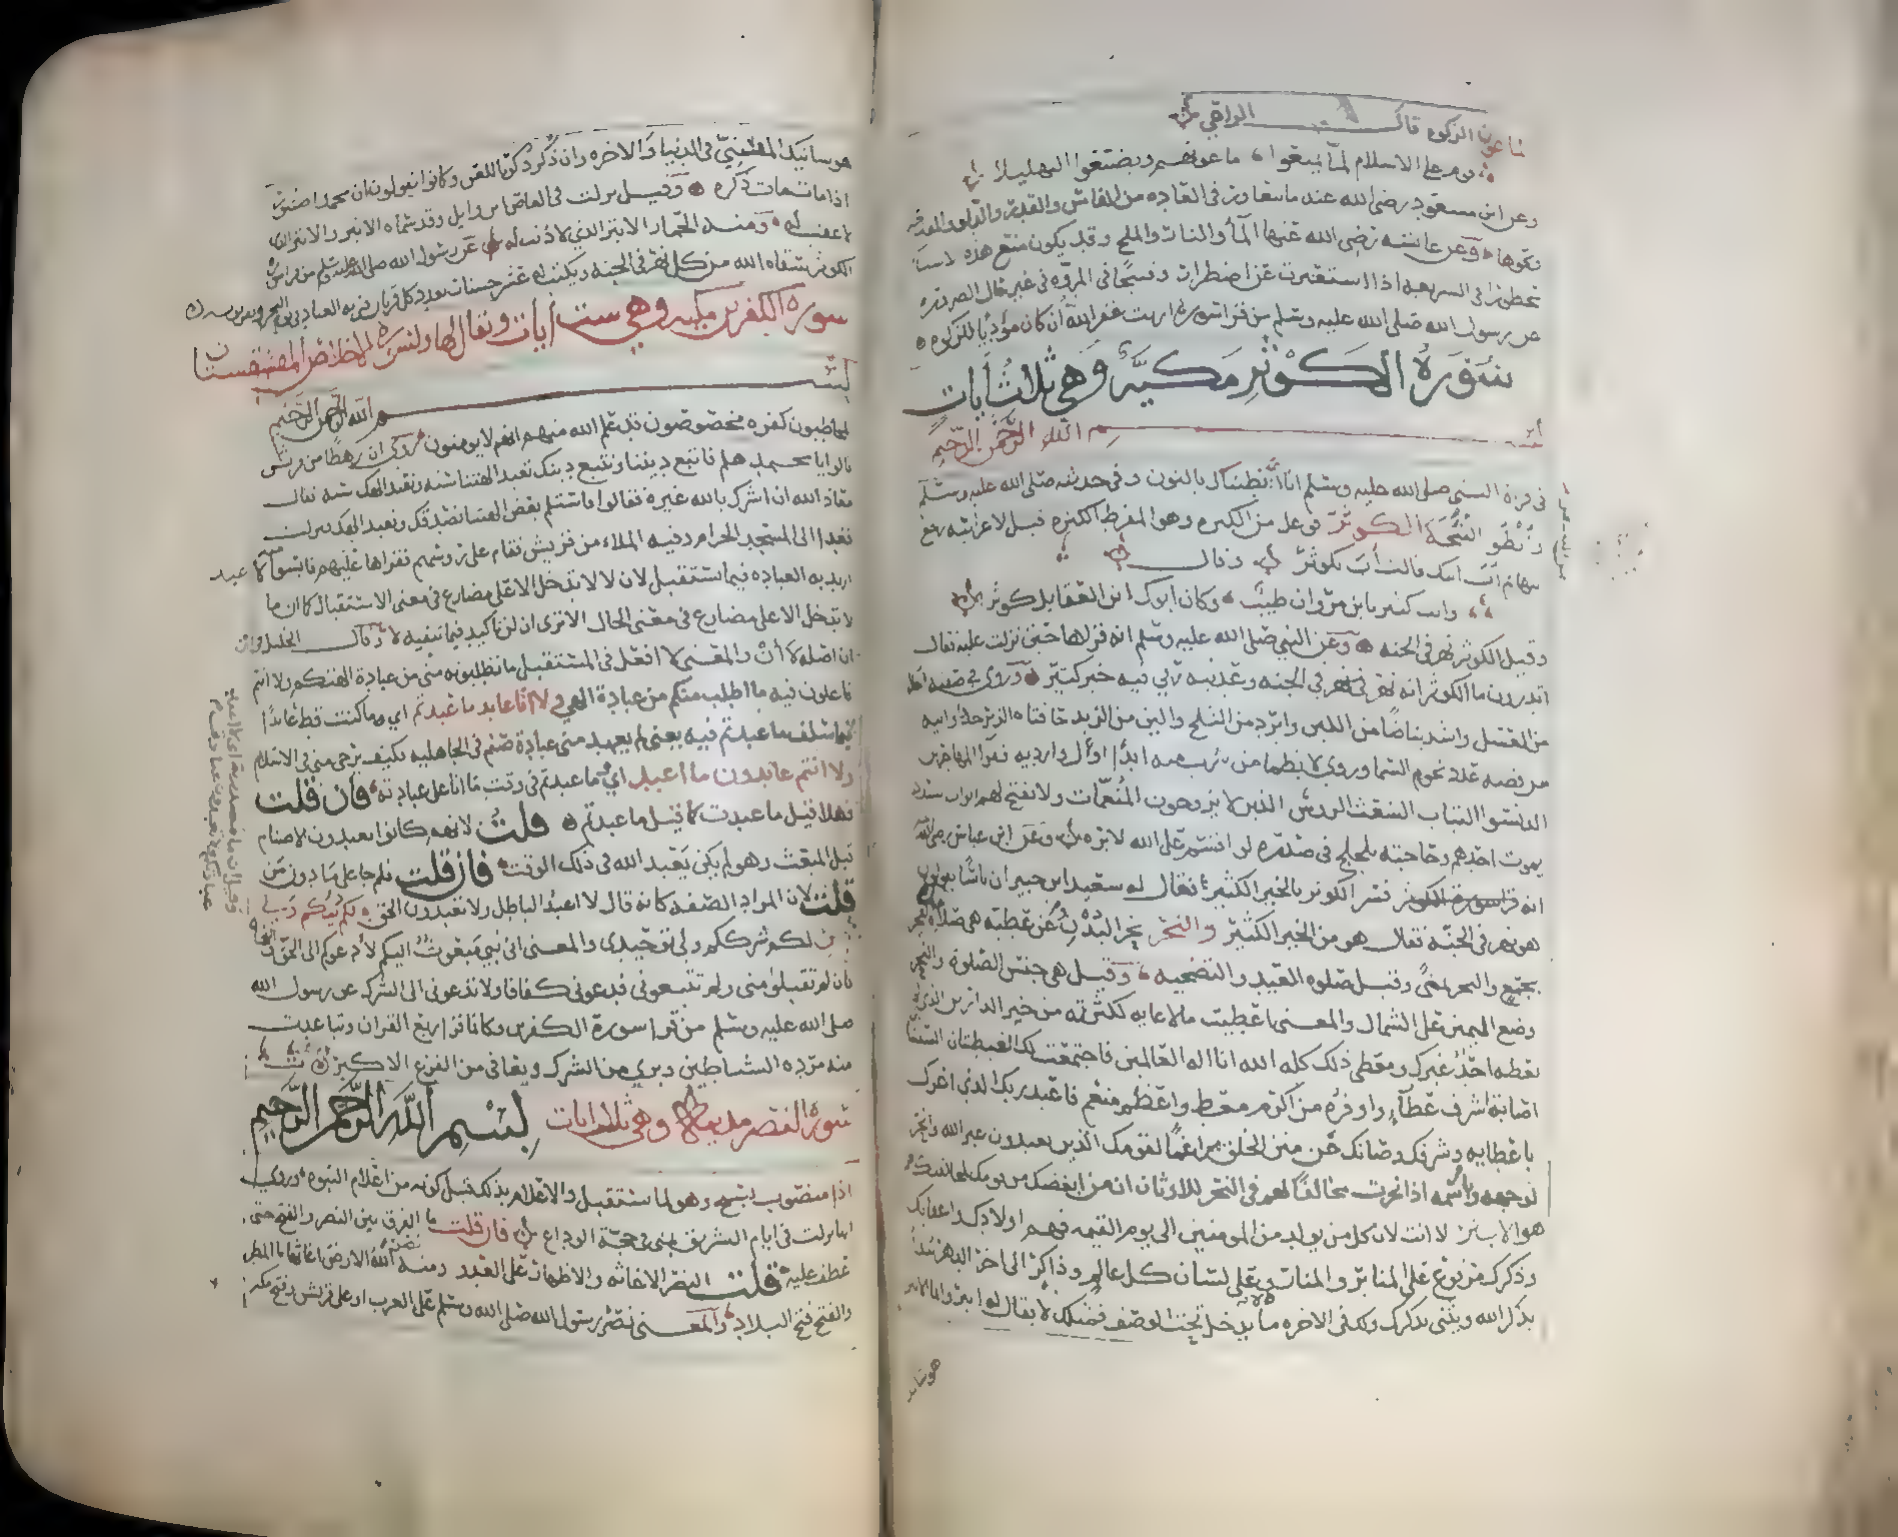 الماعون الزكوه قال الراعي
قوم على الاسلام لما يمنعوا ماعونهم ويضيعوا التهليلا
وعن ابن مسعود رضي الله عنه ما يتعاور في العاده من الفاس والقدر والدلو والمقدحه
ونحوها وعن عائشه رضي الله عنها الماء والنار والملح وقد يكون منع هذه الاشيا
محظورا في الشريعه اذا استعيرت عن اضطرار وقبيحا في المروه في غير حال الضروره
عن رسول الله صلى الله عليه وسلم من قرا سورة ارايت غفر الله له ان كان مؤديا للزكوه
سورة الكوثر مكية وهي ثلاث أيات
بسم الله الرحمن الرحيم
في قراة النبي صلى الله عليه وسلم انا انطيناك بالنون وفي حديثه صلى الله عليه وسلم
وانطوا الثبجة الكوثر فوعل من الكثره وهو المفرط الكثره قيل لاعرابيه رجع
ابنها من السفر بم آب ابنك قالت آب بكوثر وقال
وانت كثير يا ابن مروان طيب وكان ابوك ابن العقايل كوثرا
وقيل الكوثر نهر في الجنه وعن النبي صلى الله عليه وسلم انه قراها حين نزلت عليه فقال
اتدرون ما الكوثر انه نهر في الجنه وعدنيه ربي فيه خير كثير وروي في صفته احلى
من العسل واشد بياضا من اللبن وابرد من الثلج والين من الزبد حافتاه الزبرجد واوانيه
من فضه عدد نجوم السما وروي لا يظما من شرب منه ابدا اول وارديه فقرا المهاجرين
الدنسو الثياب الشعث الروس الذين لا يزوجون المنعمات ولا تفتح لهم ابواب السدد
يموت احدهم وحاجته تلجلج في صدره لو اقسم على الله لابره وعن ابن عباس رضي الله
انه فسر الكوثر بالخير الكثير فقال له سعيد ابن جبير ان ناسا يقولون
هو نهر في الجنه فقال هو من الخير الكثير والنحر نحر البدن وعن عطيه هي صلاه الفجر
بجمع والنحر بمنى وقيل صلوه العيد والتضحيه وقيل هي جنس الصلوة والنحر
وضع اليمين على الشمال والمعنى اعطيت ما لا غايه لكثرته من خير الدارين الذي لم
يعطه احد غيرك ومعطي ذلك كله الله انا اله العالمين فاجتمعت لك الغبطتان السنيتان
اصابة اشرف عطاء واوفره من اكرم معط واعظم منعم فاعبد ربك الذي اعزك
باعطايه وشرفك وصانك من منن الخلق مراغما لقومك الذين يعبدون غير الله وانحر
لوجهه وباسمه اذا نحرت مخالفا لهم في النحر للاوثان ان من ابغضك من قومك لمخالفتك لهم
هو الابتر لا انت لان كل من يولد من المومنين الى يوم القيمه فهم اولادك واعقابك
وذكرك مرفوع على المنابر والمنار وعلى لسان كل عالم وذاكر الى اخر الدهر يبدا
بذكر الله ويثني بذكرك ولك في الاخره ما لا يدخل تحت الوصف فمثلك لا يقال له ابتر وانما الابتر
هو شانيك
هو شانيك المنسي في الدنيا والاخره وان ذكر ذكر باللعن وكانوا يقولون ان محمدا صنبور
اذا مات مات ذكره وقيل نزلت في العاص بن وايل وقد سماه الابتر والابتر الذي
لا عقب له ومنه الحمار الابتر الذي لا ذنب له عن رسول الله صلى الله عليه وسلم من قرا سورة
الكوثر سقاه الله من كل نهر في الجنه ويكتب له عشر حسنات بعدد كل قربان قربه العباد في يوم النحر او يقربونه
سورة الكفرين مكيه وهي ست أيات ويقال لها ولسورة الاخلاص المقشقشتان
بسم الله الرحمن الرحيم
المخاطبون كفره مخصوصون قد علم الله منهم انهم لا يومنون روي ان رهطا من قريش
قالوا يا محمد هلم فاتبع ديننا ونتبع دينك تعبد الهتنا سنه ونعبد الهك سنه فقال
معاذ الله ان اشرك بالله غيره فقالوا فاستلم بعض الهتنا نصدقك ونعبد الهك فنزلت
فغدا الى المسجد الحرام وفيه الملاء من قريش فقام على روسهم فقراها عليهم فايسوا لا اعبد
اريد به العباده فيما يستقبل لان لا لا تدخل الا على مضارع في معنى الاستقبال كما ان ما
لا تدخل الا على مضارع في معنى الحال الا ترى ان لن تاكيد فيما تنفيه لا وقال الخليل في لن
ان اصله لا أن والمعنى لا افعل في المستقبل ما تطلبونه مني من عبادة الهتكم ولا انتم
فاعلون فيه ما اطلب منكم من عبادة الهي ولا انا عابد ما عبدتم اي وما كنت قط عابدا
فيما سلف ما عبدتم فيه يعني لم يعهد مني عبادة صنم في الجاهليه فكيف ترجى مني في الاسلام
ولا انتم عابدون ما اعبد اي وما عبدتم في وقت ما انا على عبادته فان قلت
فهلا قيل ما عبدت كما قيل ما عبدتم قلت لانهم كانوا يعبدون الاصنام
قبل المبعث وهو لم يكن يعبد الله في ذلك الوقت فان قلت فلم جا على ما دون من
قلت لان المراد الصفه كانه قال لا اعبد الباطل ولا تعبدون الحق لكم دينكم ولي
دين لكم شرككم ولي توحيدي والمعنى اني نبي مبعوث اليكم لادعوكم الى الحق والنجاه
فان لم تقبلوا مني ولم تتبعوني فدعوني كفافا ولا تدعوني الى الشرك عن رسول الله
صلى الله عليه وسلم من قرا سورة الكفرين وكانما قرا ربع القران وتباعدت
منه مرده الشياطين وبري من الشرك ويعافى من الفزع الاكبر
سورة النصر مدنيه وهي ثلاث ايات بسم الله الرحمن الرحيم
اذا منصوب بسبح وهو لما يستقبل والاعلام بذلك قبل كونه من اعلام النبوه وروي
انها نزلت في ايام التشريق بمنى في حجة الوداع فان قلت ما الفرق بين النصر والفتح حتى
عطف عليه قلت النصر الاغاثه والاظهار على العدو ومنه نصر الله الارض اغاثها بالمطر
والفتح فتح البلاد والمعنى نصر رسول الله صلى الله وسلم على العرب او على قريش وفتح مكه